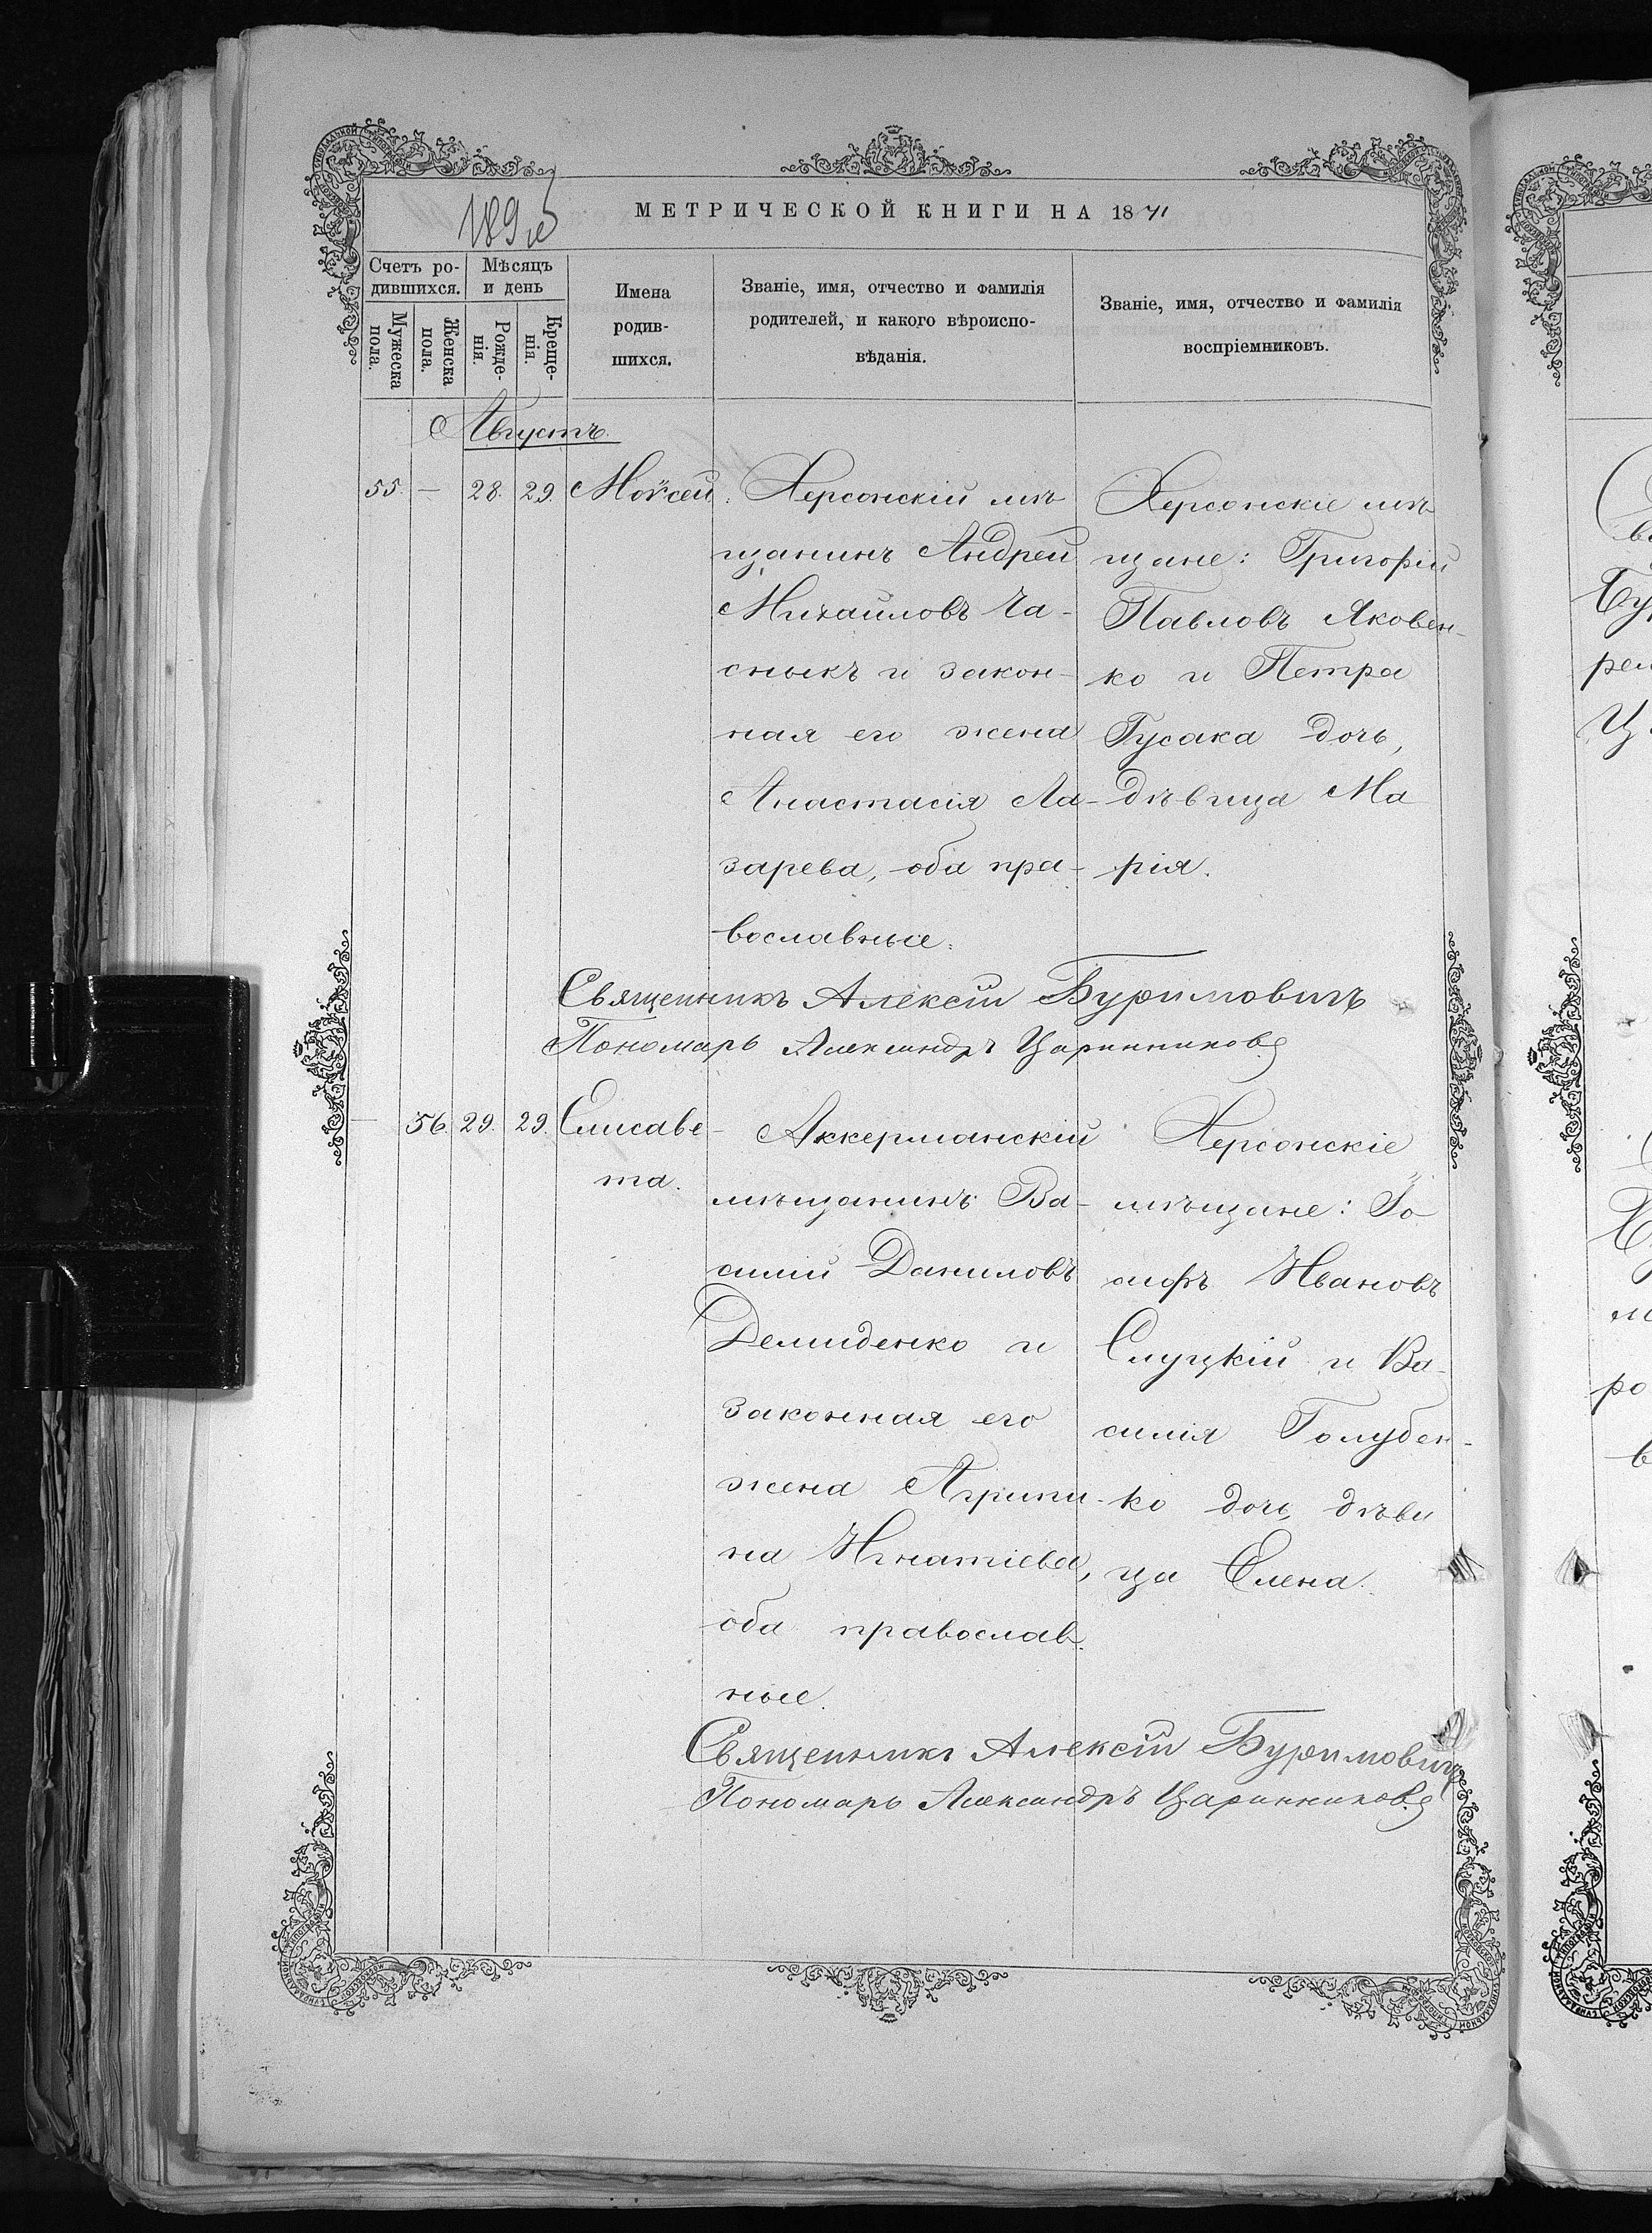 189 об
МЕТРИЧЕСКОЙ КНИГИ НА 1871
Счетъ ро-
дившихся.
Мѣсяцъ
и день
Мужеска
пола.
Женска
пола.
Рожде-
нія.
Креще-
нія.
Имена
родив-
шихся.
Званіе, имя, отчество и фамилія
родителей, и какого вѣроиспо-
вѣданія.
Званіе, имя, отчество и фамилія
воспріемниковъ.
Августъ.
55. — 28. 29. Моѵсей.
Херсонскій мѣ
щанинъ Андрей
Михаиловъ Ча-
сныкъ и закон-
ная его жена
Анастасія Ла-
зарева, оба пра-
вославные.
Херсонскіе мѣ-
щане: Григорій
Павловъ Яковен-
ко и Петра
Гусака дочь,
дѣвица Ма
рія.
Священникъ Алексій Буримовичъ
Пономарь Александръ Царинниковъ
— 56. 29. 29. Елисаве-
та.
Аккерманскій
мѣщанинъ Ва-
силій Даниловъ
Демиденко и
законная его
жена Агрипи-
на Игнатіева,
оба православ.
ные.
Херсонскіе
мѣщане: Іо
сифъ Ивановъ
Слуцкій и Ва-
силія Голубен-
ко дочь, дѣви
ца Елена.
Священникъ Алексій Буримовичъ
Пономарь Александръ Царинниковъ